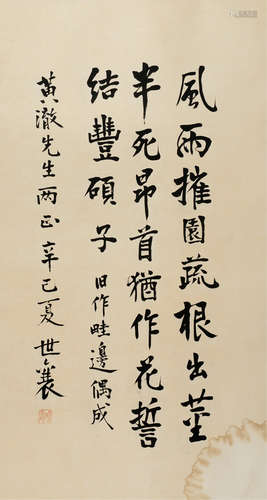 風雨摧園蔬根出莖
半死昂首猶作花誓
結豐碩子 旧作畦邊偶成
黃澈先生两正 辛巳夏 世襄